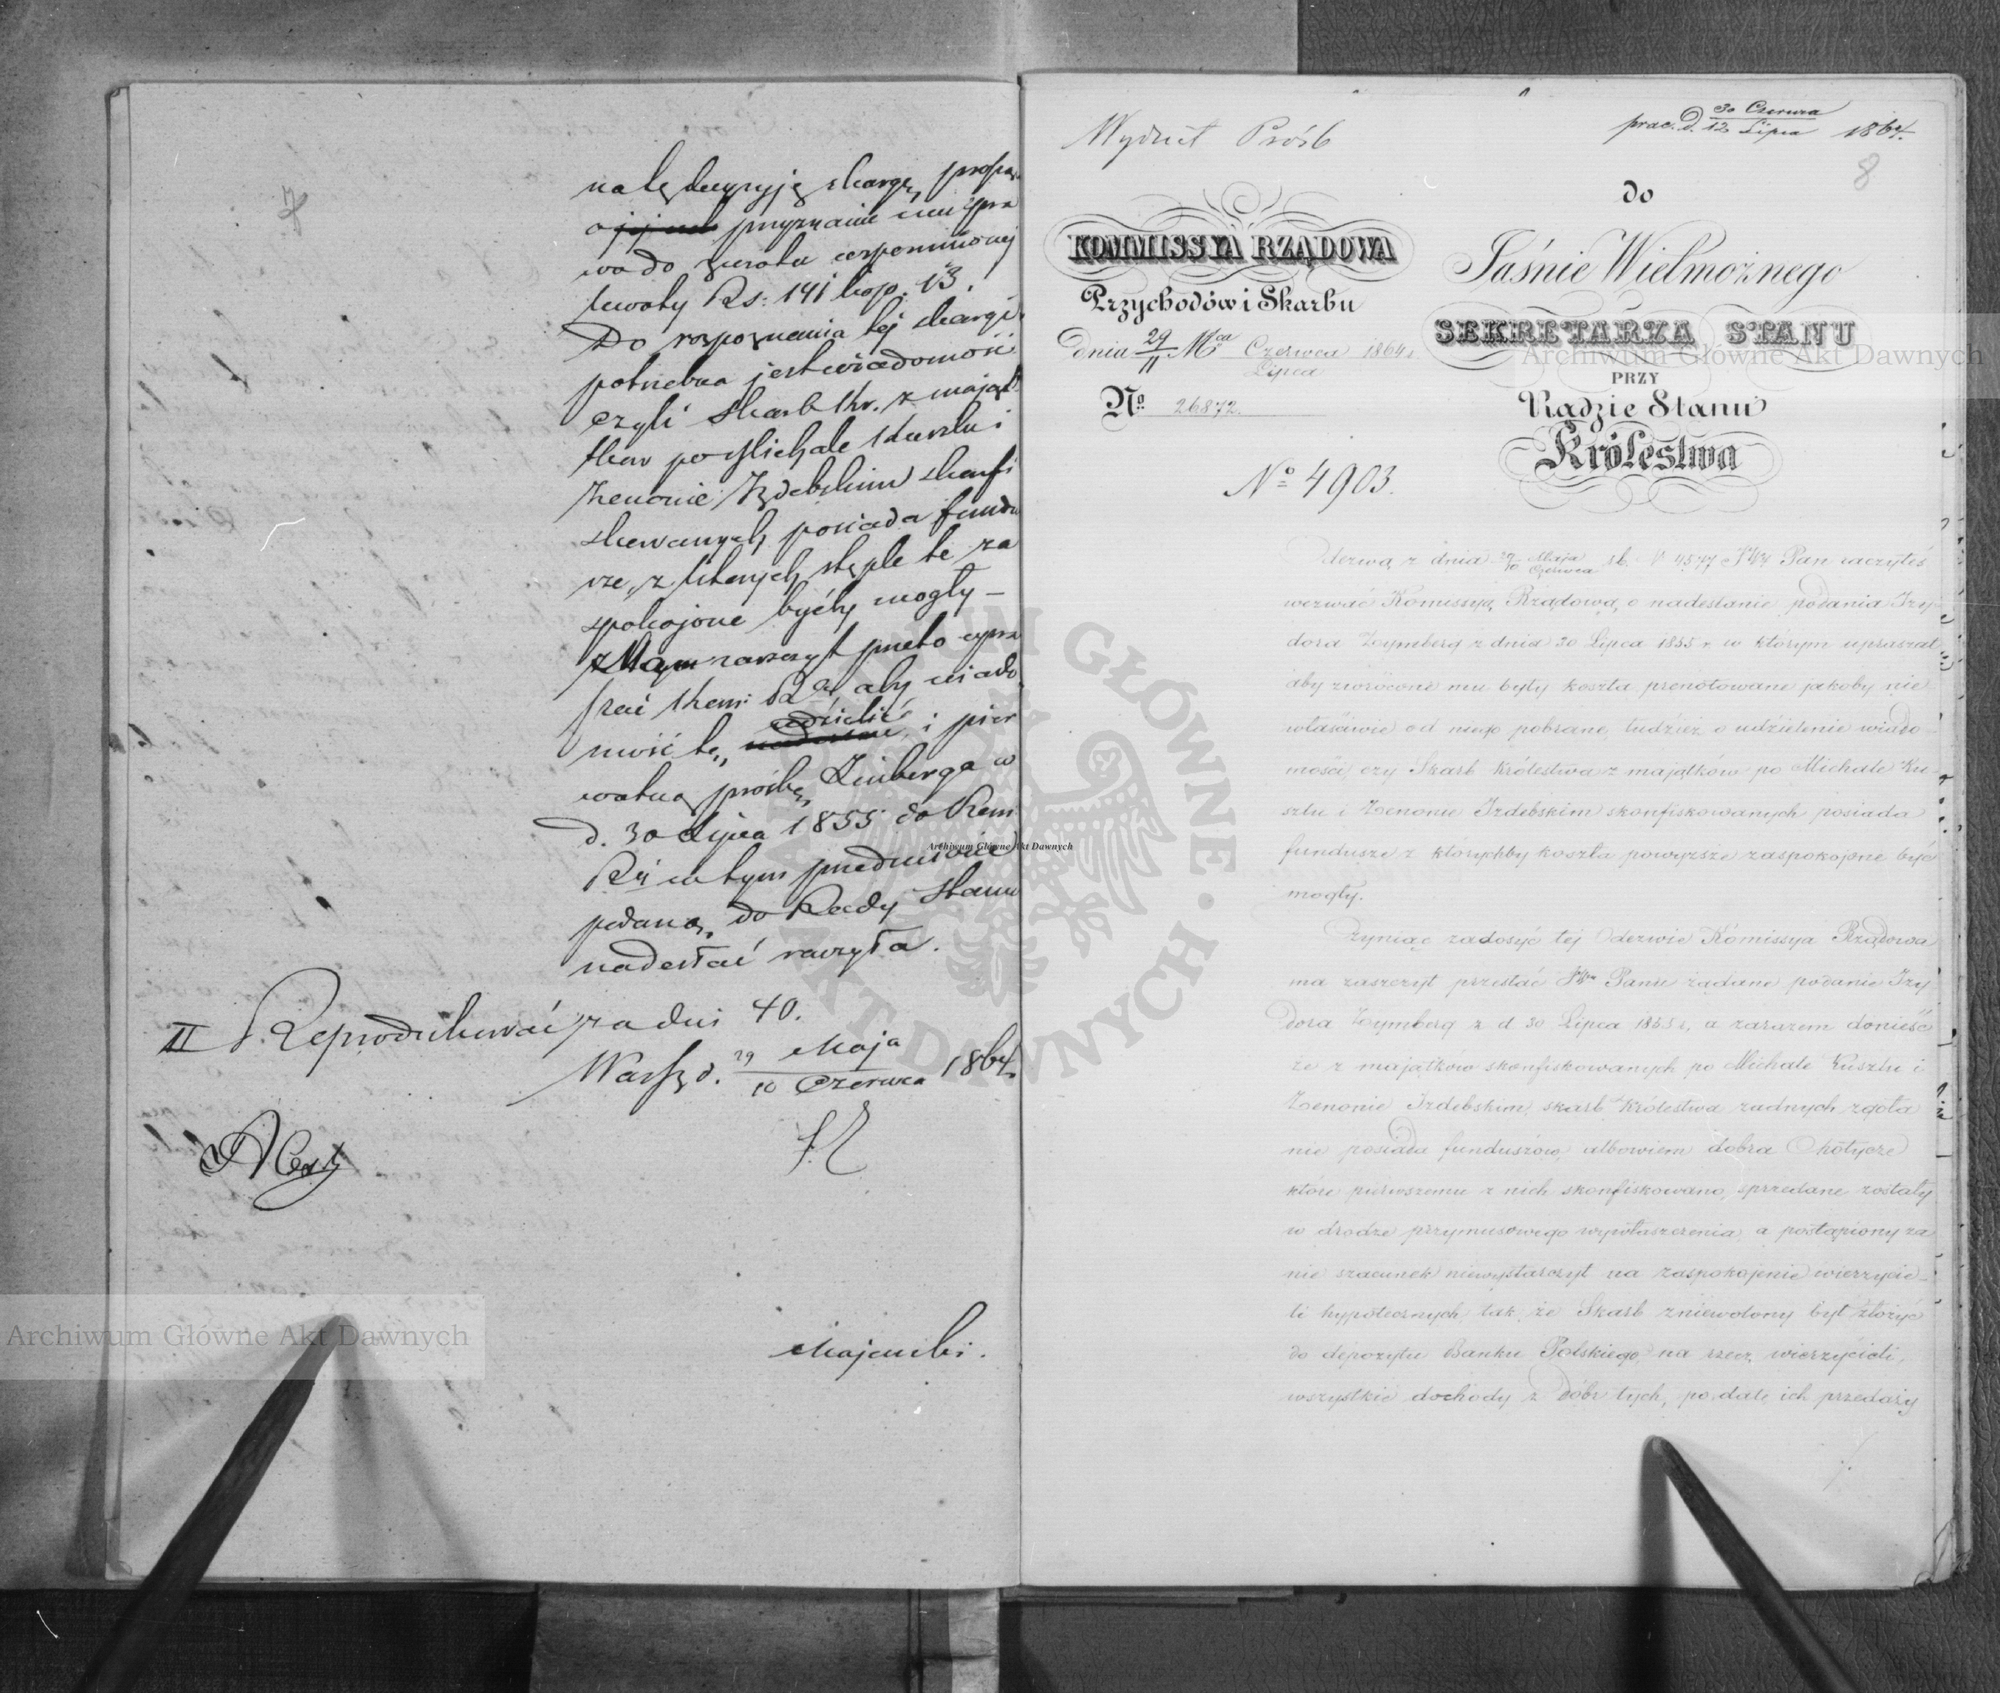 na tę decyzyję skargę, prosząc
o przyznanie mu pra
wa do zwrotu wspomnionej
kwoty Rs: 141 kop. 13.
Do rozpoznania tej skargi
potrzebna jest wiadomość
czyli Skarb Kr. z mająt
ków po Michale Kuszlu i
Zenonie Izdebskim skonfi
skowanych, posiada fundu
sze, z których stęple te za
spokojone byćby mogły –
Mam zaszczyt przeto upra
szać Kom: Rz, aby wiado
mość tę, udzielić i pier
wotną prośbę Zimberga w
d. 30 Lipca 1855 do Kom
Rz w tym przedmiocie
podaną, do Rady Stanu
nadesłać raczyła.
II Reprodukować za dni 40.
Warsz. d. 29 Maja
10 Czerwca 1864
Majewski.
8
Wydział Próśb
prac. d. 30 Czerwca
12 Lipca 1864.
KOMMISSYA RZĄDOWA
Przychodów i Skarbu
dnia 29 Mca Czerwca 1864 r.
11 Lipca
No 26872.
do
Jaśnie Wielmożnego
SEKRETARZA STANU
PRZY
Radzie Stanu
Królestwa
No 4903.
Odezwą z dnia 29 Maja
10 Czerwca rb. N 4577 JW Pan raczyłeś
wezwać Komissyą Rządową, o nadesłanie podania Izy-
dora Zymberg z dnia 30 Lipca 1855 r. w którym upraszał
aby zwrócone mu były koszta prenotowane jakoby nie
właściwie od niego pobrane, tudzież o udzielenie wiado-
mości, czy Skarb Królestwa z majątków po Michale Ku-
szlu i Zenonie Izdebskim skonfiskowanych posiada
fundusze z którychby koszta powyższe zaspokojone być
mogły.
Czyniąc zadosyć tej Odezwie Kommissya Rządowa
ma zaszczyt przesłać JW Panu żądane podanie Izy-
dora Zymberg z d 30 Lipca 1855 r, a zarazem donieść
że z majątków skonfiskowanych po Michale Kuszlu i
Zenonie Izdebskim, skarb Królestwa żadnych zgoła
nie posiada funduszów, albowiem dobra Chotycze
które pierwszemu z nich skonfiskowano, sprzedane zostały
w drodze przymusowego wywłaszczenia, a postąpiony za
nie szacunek niewystarczył na zaspokojenie wierzycie-
li hypotecznych, tak, że Skarb zniewolony był złożyć
do depozytu Banku Polskiego, na rzecz wierzycieli,
wszystkie dochody z dóbr tych, po datę ich przedaży
./.
Archiwum Główne Akt Dawnych
Archiwum Główne Akt Dawnych
Archiwum Główne Akt Dawnych
ARCHIWUM GŁÓWNE AKT DAWNYCH